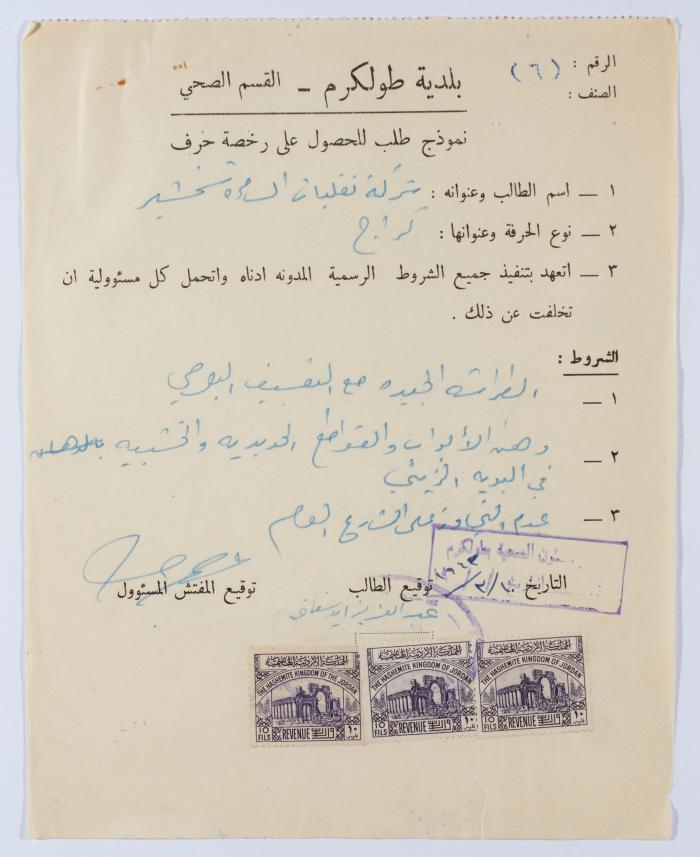 الرقم : (٦)
الصنف :
بلدية طولكرم – القسم الصحي
نموذج طلب للحصول على رخصة حرف
١ – اسم الطالب وعنوانه : شركة نقليات
٢ – نوع الحرفة وعنوانها : كراج
٣ – اتعهد بتنفيذ جميع الشروط الرسمية المدونه ادناه واتحمل كل مسئوولية ان
تخلفت عن ذلك .
الشروط :
١ – الطراشه الجيده مع التنظيف اليومي
٢ – دهن الأبواب والقواطع الحديديه والخشبيه بالدهان
في البويه الزيتي
٣ – عدم التجاوز على الشارع العام
شؤون الصحية بطولكرم
التاريخ توقيع الطالب توقيع المفتش المسئوول
عبد العزيز
المملكة الأردنية الهاشمية
THE HASHEMITE KINGDOM OF THE JORDAN
10 FILS REVENUE ١٠ فلوس
المملكة الأردنية الهاشمية
THE HASHEMITE KINGDOM OF JORDAN
10 FILS REVENUE ١٠ فلوس
المملكة الأردنية الهاشمية
THE HASHEMITE KINGDOM OF JORDAN
10 FILS REVENUE ١٠ فلوس